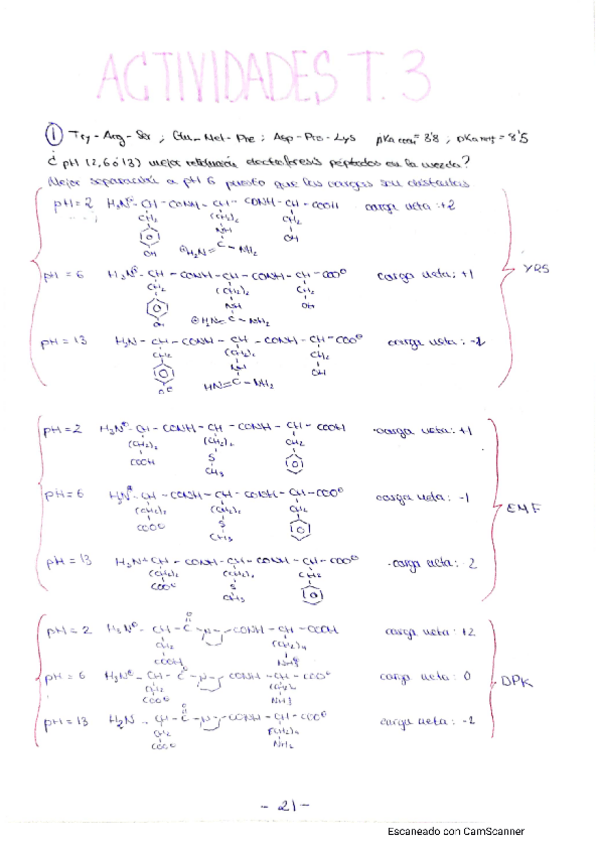 ACTIVIDADES T.3
① Try-Arg-Ser ; Glu-Met-Phe ; Asp-Pro-Lys pKa COOH = 3'8 , pKa NH2 = 8'5
¿ pH (2, 6 ó 13) mejor electroforesis péptidos en la mezcla?
Mejor separación a pH 6 puesto que las cargas son distintas
pH = 2 H3N⊕-CH-CONH-CH-CONH-CH-COOH carga neta: +2
CH2 (CH2)3 CH2
NH OH
OH ⊕H2N=C-NH2
YRS
pH = 6 H3N⊕-CH-CONH-CH-CONH-CH-COO⊖ carga neta: +1
CH2 (CH2)3 CH2
NH OH
OH ⊕H2N=C-NH2
pH = 13 H2N-CH-CONH-CH-CONH-CH-COO⊖ carga neta: -2
CH2 (CH2)3 CH2
NH OH
HN=C-NH2
pH = 2 H3N⊕-CH-CONH-CH-CONH-CH-COOH carga neta: +1
(CH2)2 (CH2)2 CH2
COOH S
CH3
pH = 6 H3N⊕-CH-CONH-CH-CONH-CH-COO⊖ carga neta: -1
(CH2)2 (CH2)2 CH2
COO⊖ S
CH3
EMF
pH = 13 CH-CONH-CH-CONH-CH-COO⊖ -carga neta: 2
(CH2)2 (CH2)2 CH2
COO⊖ S
CH3
pH = 2 H3N⊕-CH-C-N-CONH-CH-COOH carga neta: +2
CH2 (CH2)4
COOH
pH = 6 H3N⊕-CH-C-N-CONH-CH-COO⊖ carga neta: 0
CH2
COO⊖
DPK
pH = 13 H2N-CH-C-N-CONH-CH-COO⊖ carga neta: -2
CH2 (CH2)4
COO⊖ NH2
-21-
Escaneado con CamScanner